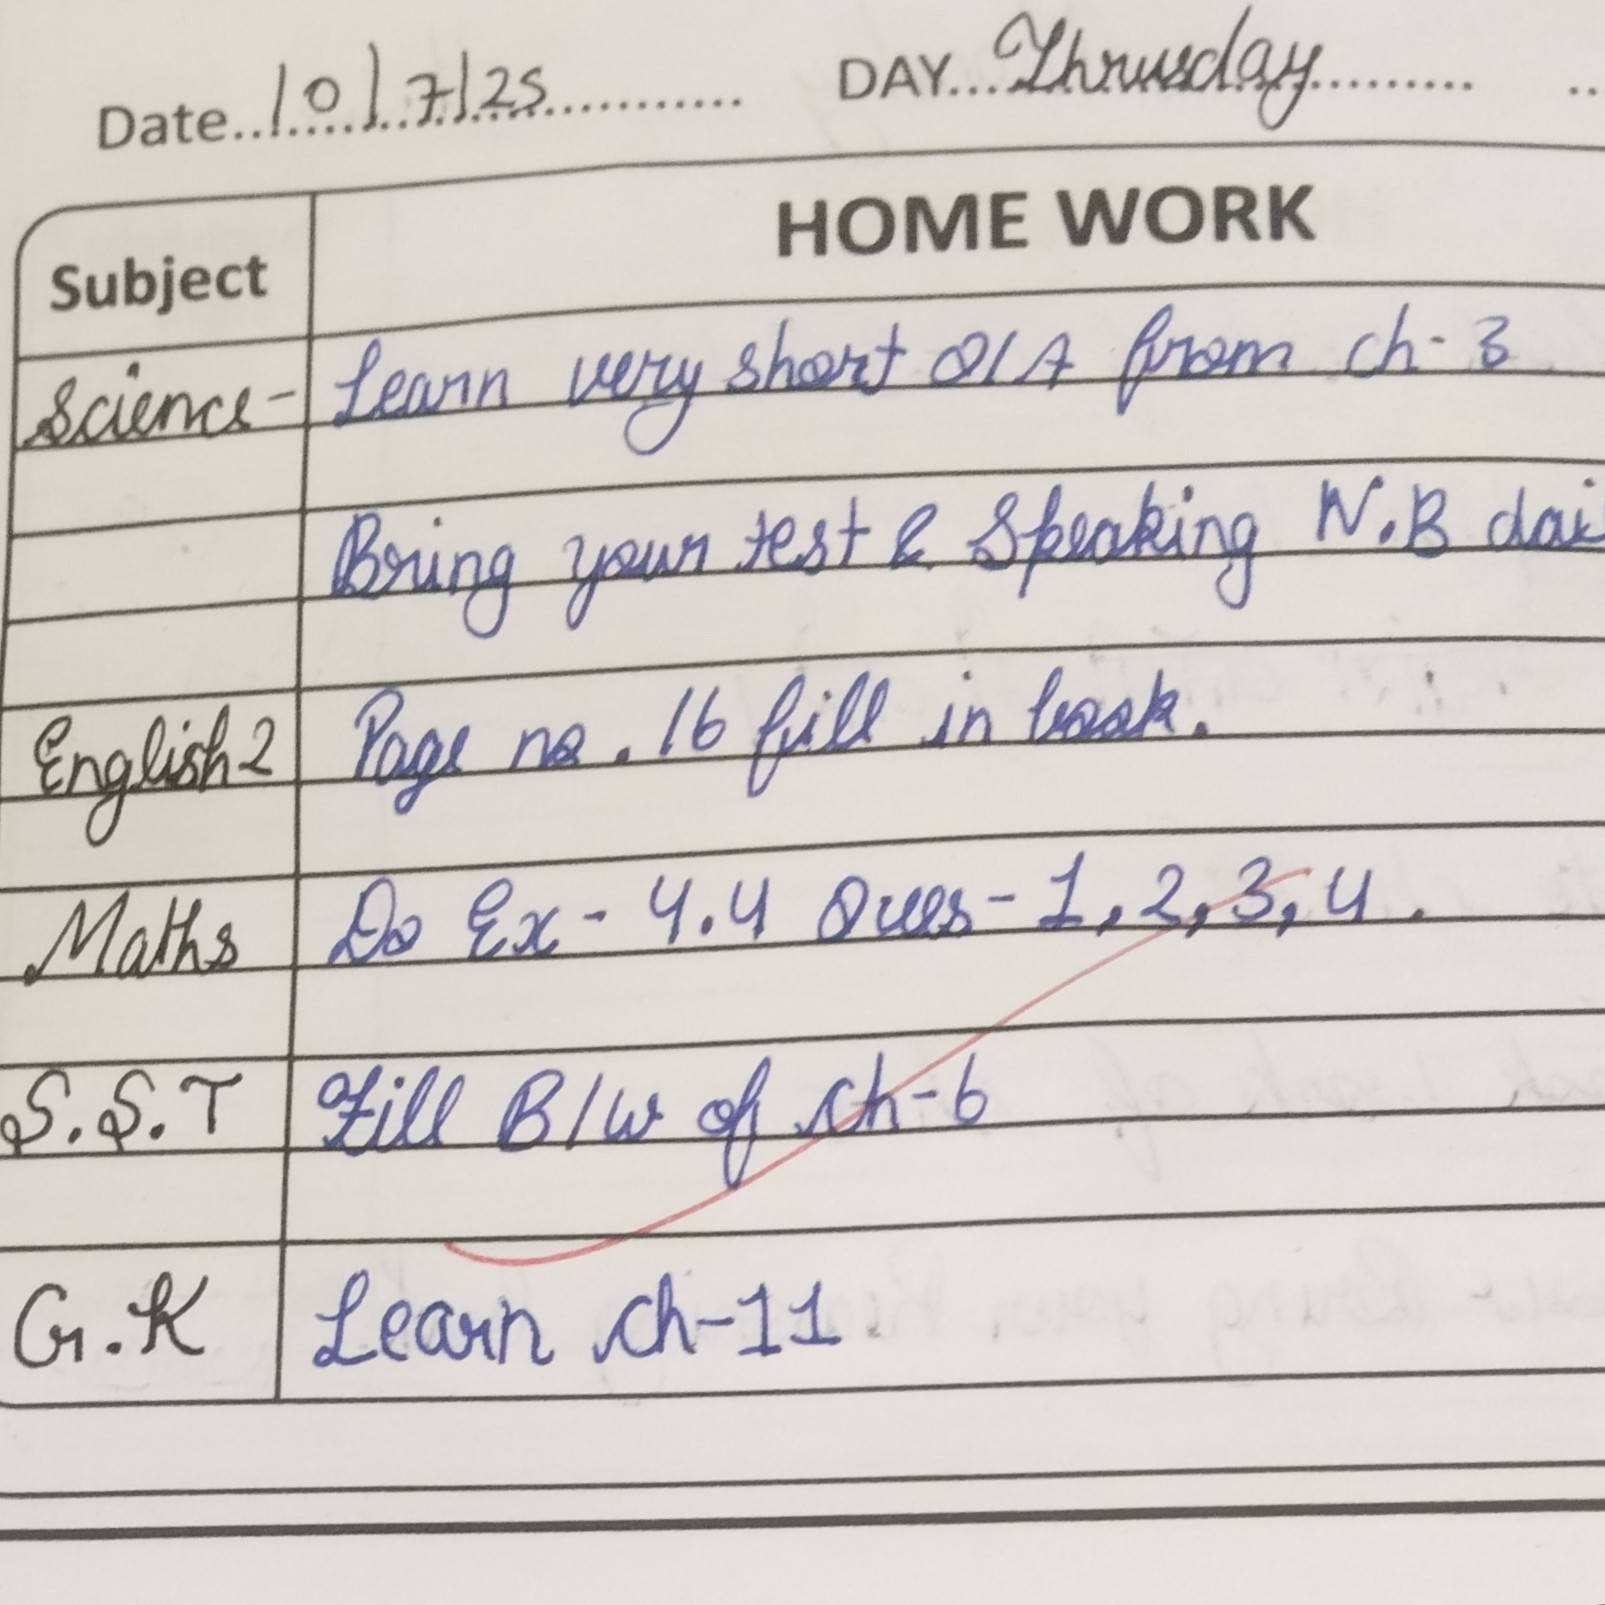 Date..10/7/25............ DAY...Thrusday.........
Subject HOME WORK
Science - Learn very short Q/A from ch-3
Bring your test & Speaking N.B dai
English 2 Page no. 16 fill in book.
Maths Do Ex-4.4 Ques-1,2,3,4.
S.S.T Fill B/W of ch-6
G.K Learn ch-11